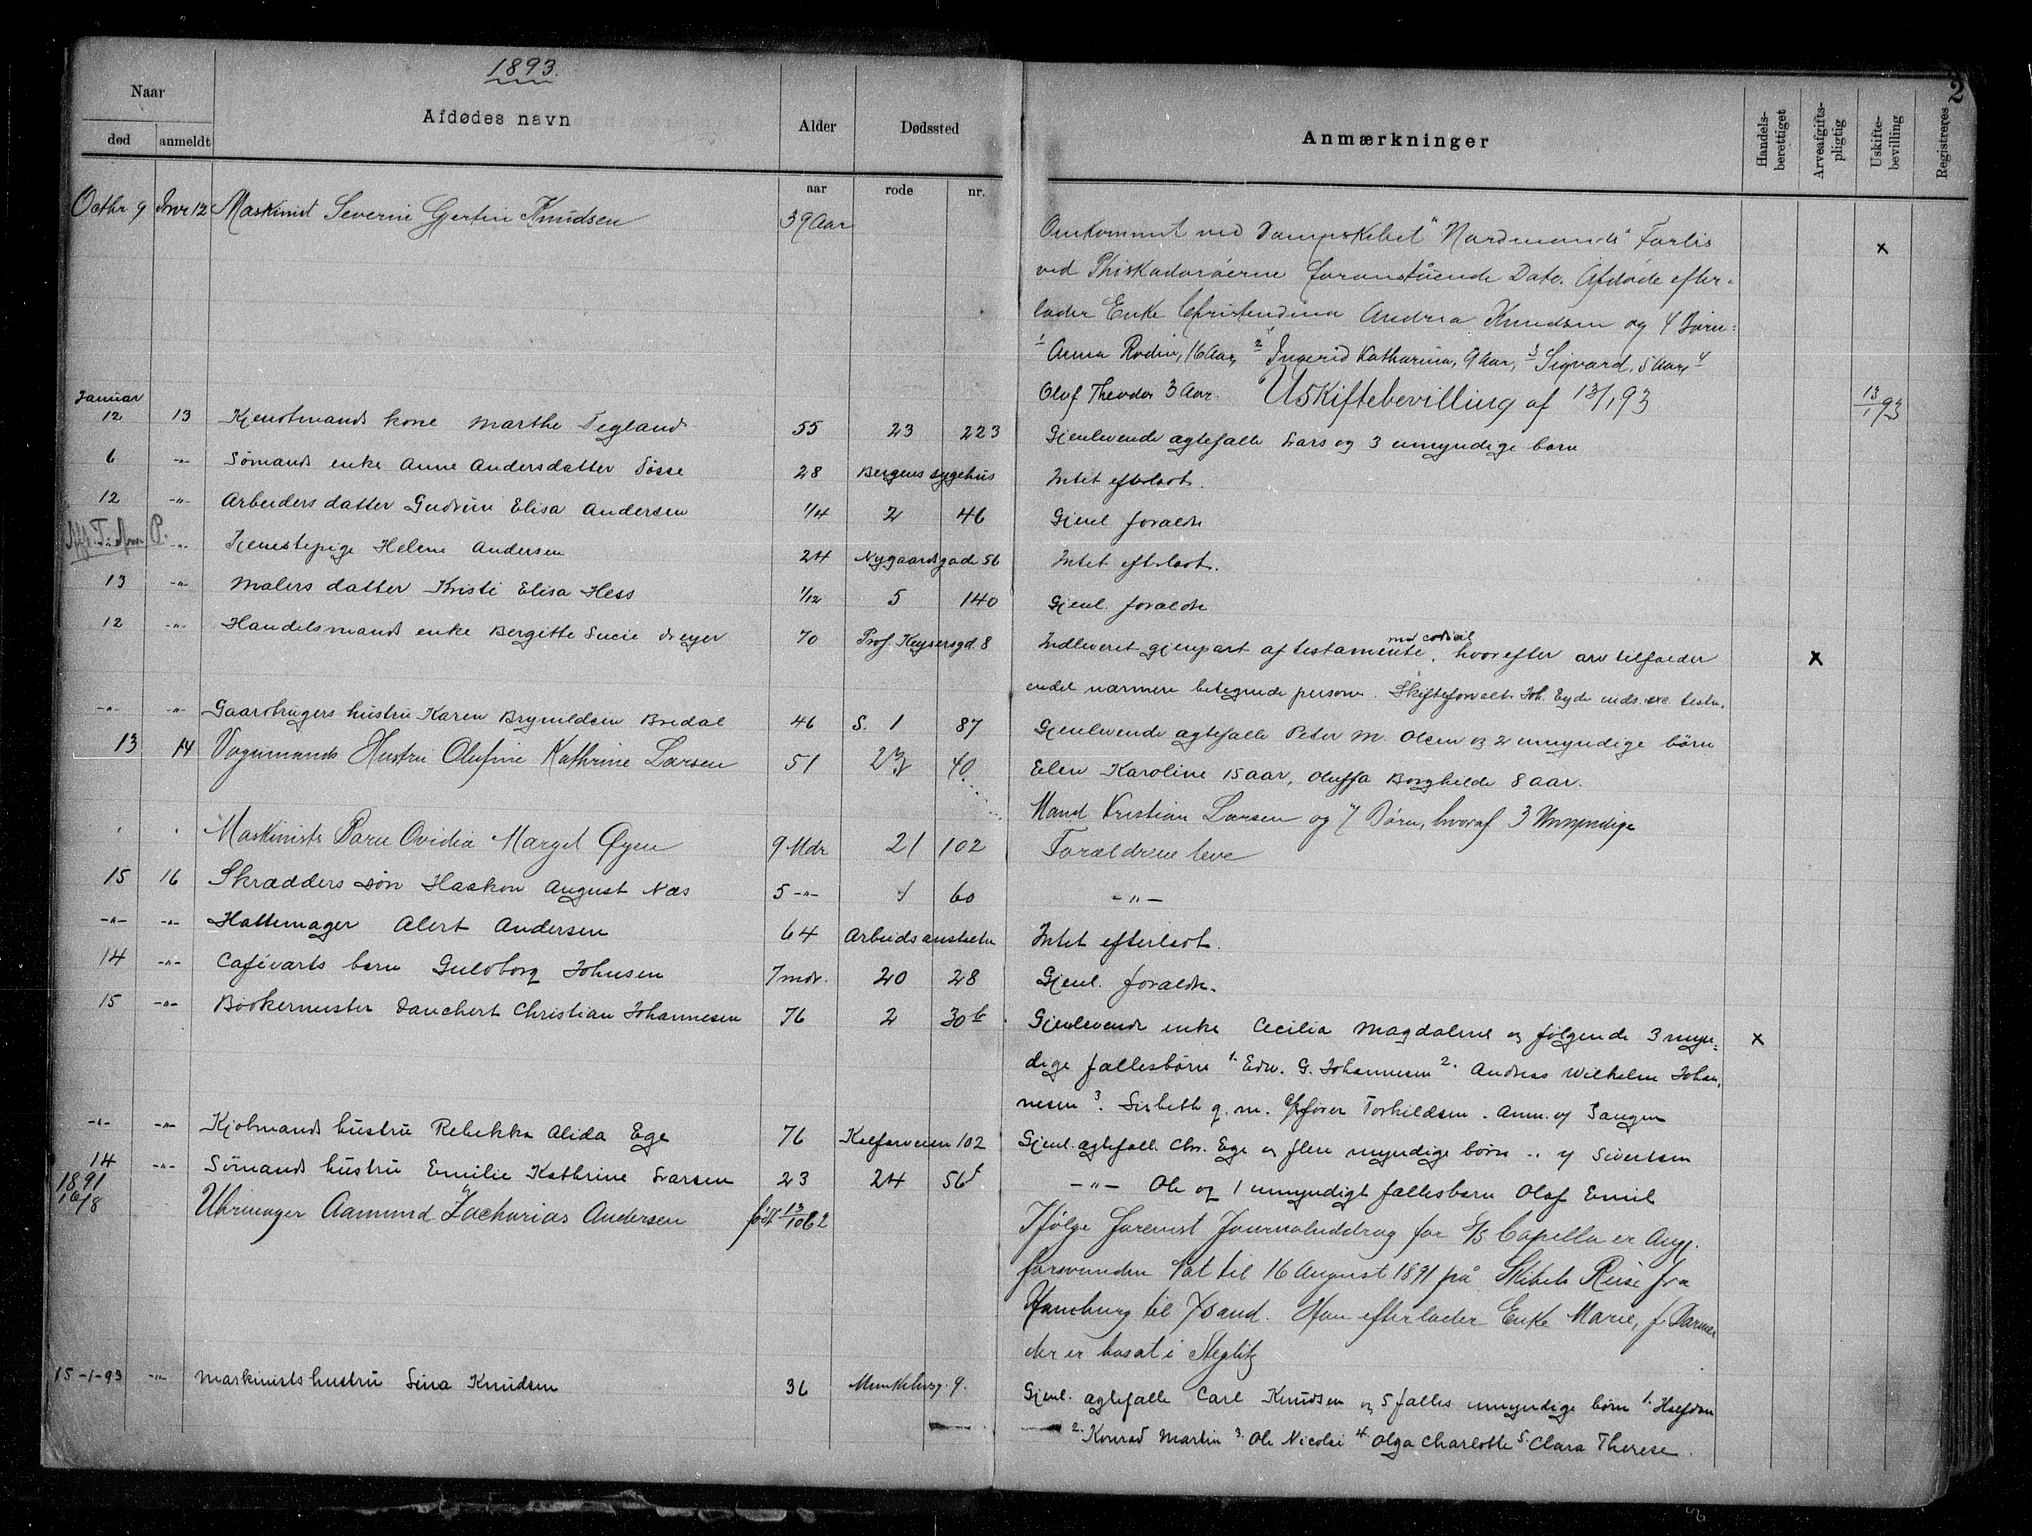 1893.
2
Naar
Afdødes navn
Alder
Dødssted
Anmærkninger
Handels-berettiget
Arveafgifts-pligtig
Uskifte-bevilling
Registreres
død anmeldt
aar rode nr.
Octbr 9 Jnvr 12 Maskinist Severin Gjertin Knudsen 39 Aar
Omkommet ved Dampskibet "Nordmands" Forlis x
ved Phiskadorøerne foranstående Dato. Afdøde efter-
lader Enke Christendina Andrea Knudsen og 4 Børn:
1 Anna Rodin, 16 Aar, 2 Ingerid Katharina, 9 Aar, 3 Sigvard, 5 Aar, 4
Olof Theodor 3 Aar. Uskiftebevilling af 13/1 93 13/1 93
Januar
12 13 Kjøbmands kone Marthe Tegland 55 23 223 Gjenlevende ægtefælle Lars og 3 umyndige børn
6 -"- Sømands enke Anne Andersdatter Søsse 28 Bergens sygehus Intet efterladt.
12 -"- Arbeiders datter Gudrun Elisa Andersen 1/4 2 46 Gjenl forældre
-"- -"- Tjenestepige Helene Andersen 24 Nygaardsgade 56 Intet efterladt.
13 -"- Malers datter Kristi Elisa Hess 1/12 5 140 Gjenl. forældre
12 -"- Handelsmands enke Bergitte Lucie Dreyer 70 Prof. Keysersgd. 8 Indleveret gjenpart af testamente med codicil, hvorefter arv tilfalder x
endel nærmere betegnede personer. Skifteforvalt. Joh. Eyde inds. exe. testm.
-"- -"- Gaardbrugers hustru Karen Brynildsen Bredal 46 S. 1 87 Gjenlevende ægtefælle Peter M. Olsen og 2 umyndige børn
Elen Karoline 15 aar, Oluffa Borghilde 8 aar.
13 14 Vognmands Hustru Olufine Kathrine Larsen 51 23 40
Mand Kristian Larsen og 7 Børn, hvoraf 3 Umyndige
Maskinists Barn Ovidia Margit Øyen 9 Mdr 21 102 Forældrene leve
15 16 Skrædders søn Haakon August Næs 5 -"- 1 60 -"-
-"- -"- Hattemager Alert Andersen 64 Arbeidsanstalten Intet efterladt.
14 -"- Cafeværts barn Guldborg Johnsen 7 mdr. 20 28 Gjenl. forældre.
15 -"- Bødkermester Danchert Christian Johannesen 76 2 30 b Gjenlevende enke Cecilia Magdalene og følgende 3 myn- x
dige fællesbørn 1. Edw. G. Johannesen 2. Andreas Wilhelm Johan-
nesen 3. Lisbeth g. m. Torkildsen. Anm. af
-"- -"- Kjøbmands hustru Rebekka Alida Ege 76 Kalfarveien 102 Gjenl. ægtefælle Chr. Ege og flere myndige børn -"- af Sivertsen
14 -"- Sømands hustru Emilie Kathrine Larsen 23 24 56 f -"- Ole og 1 umyndigt fællesbarn Olaf Emil
1891
16/8 Uhrmager Aamund Zacharias Andersen født 13/10 62 Ifølge forevist Journaluddrag for S/S Capella er Ang.
forsvunden Nat til 16 August 1891 på Skibets Reise fra
Hamburg til Island. Han efterlader Enke Marie, f.
der er bosat i Steglitz
15-1-93 -"- Maskinists hustru Lina Knudsen 36 Munkebotg. 9. Gjenl. ægtefælle Carl Knudsen og 5 fælles umyndige børn 1. Halfdan
2. Konrad Martin 3. Ole Nicolai 4. Olga Charlotte 5. Clara Therese.